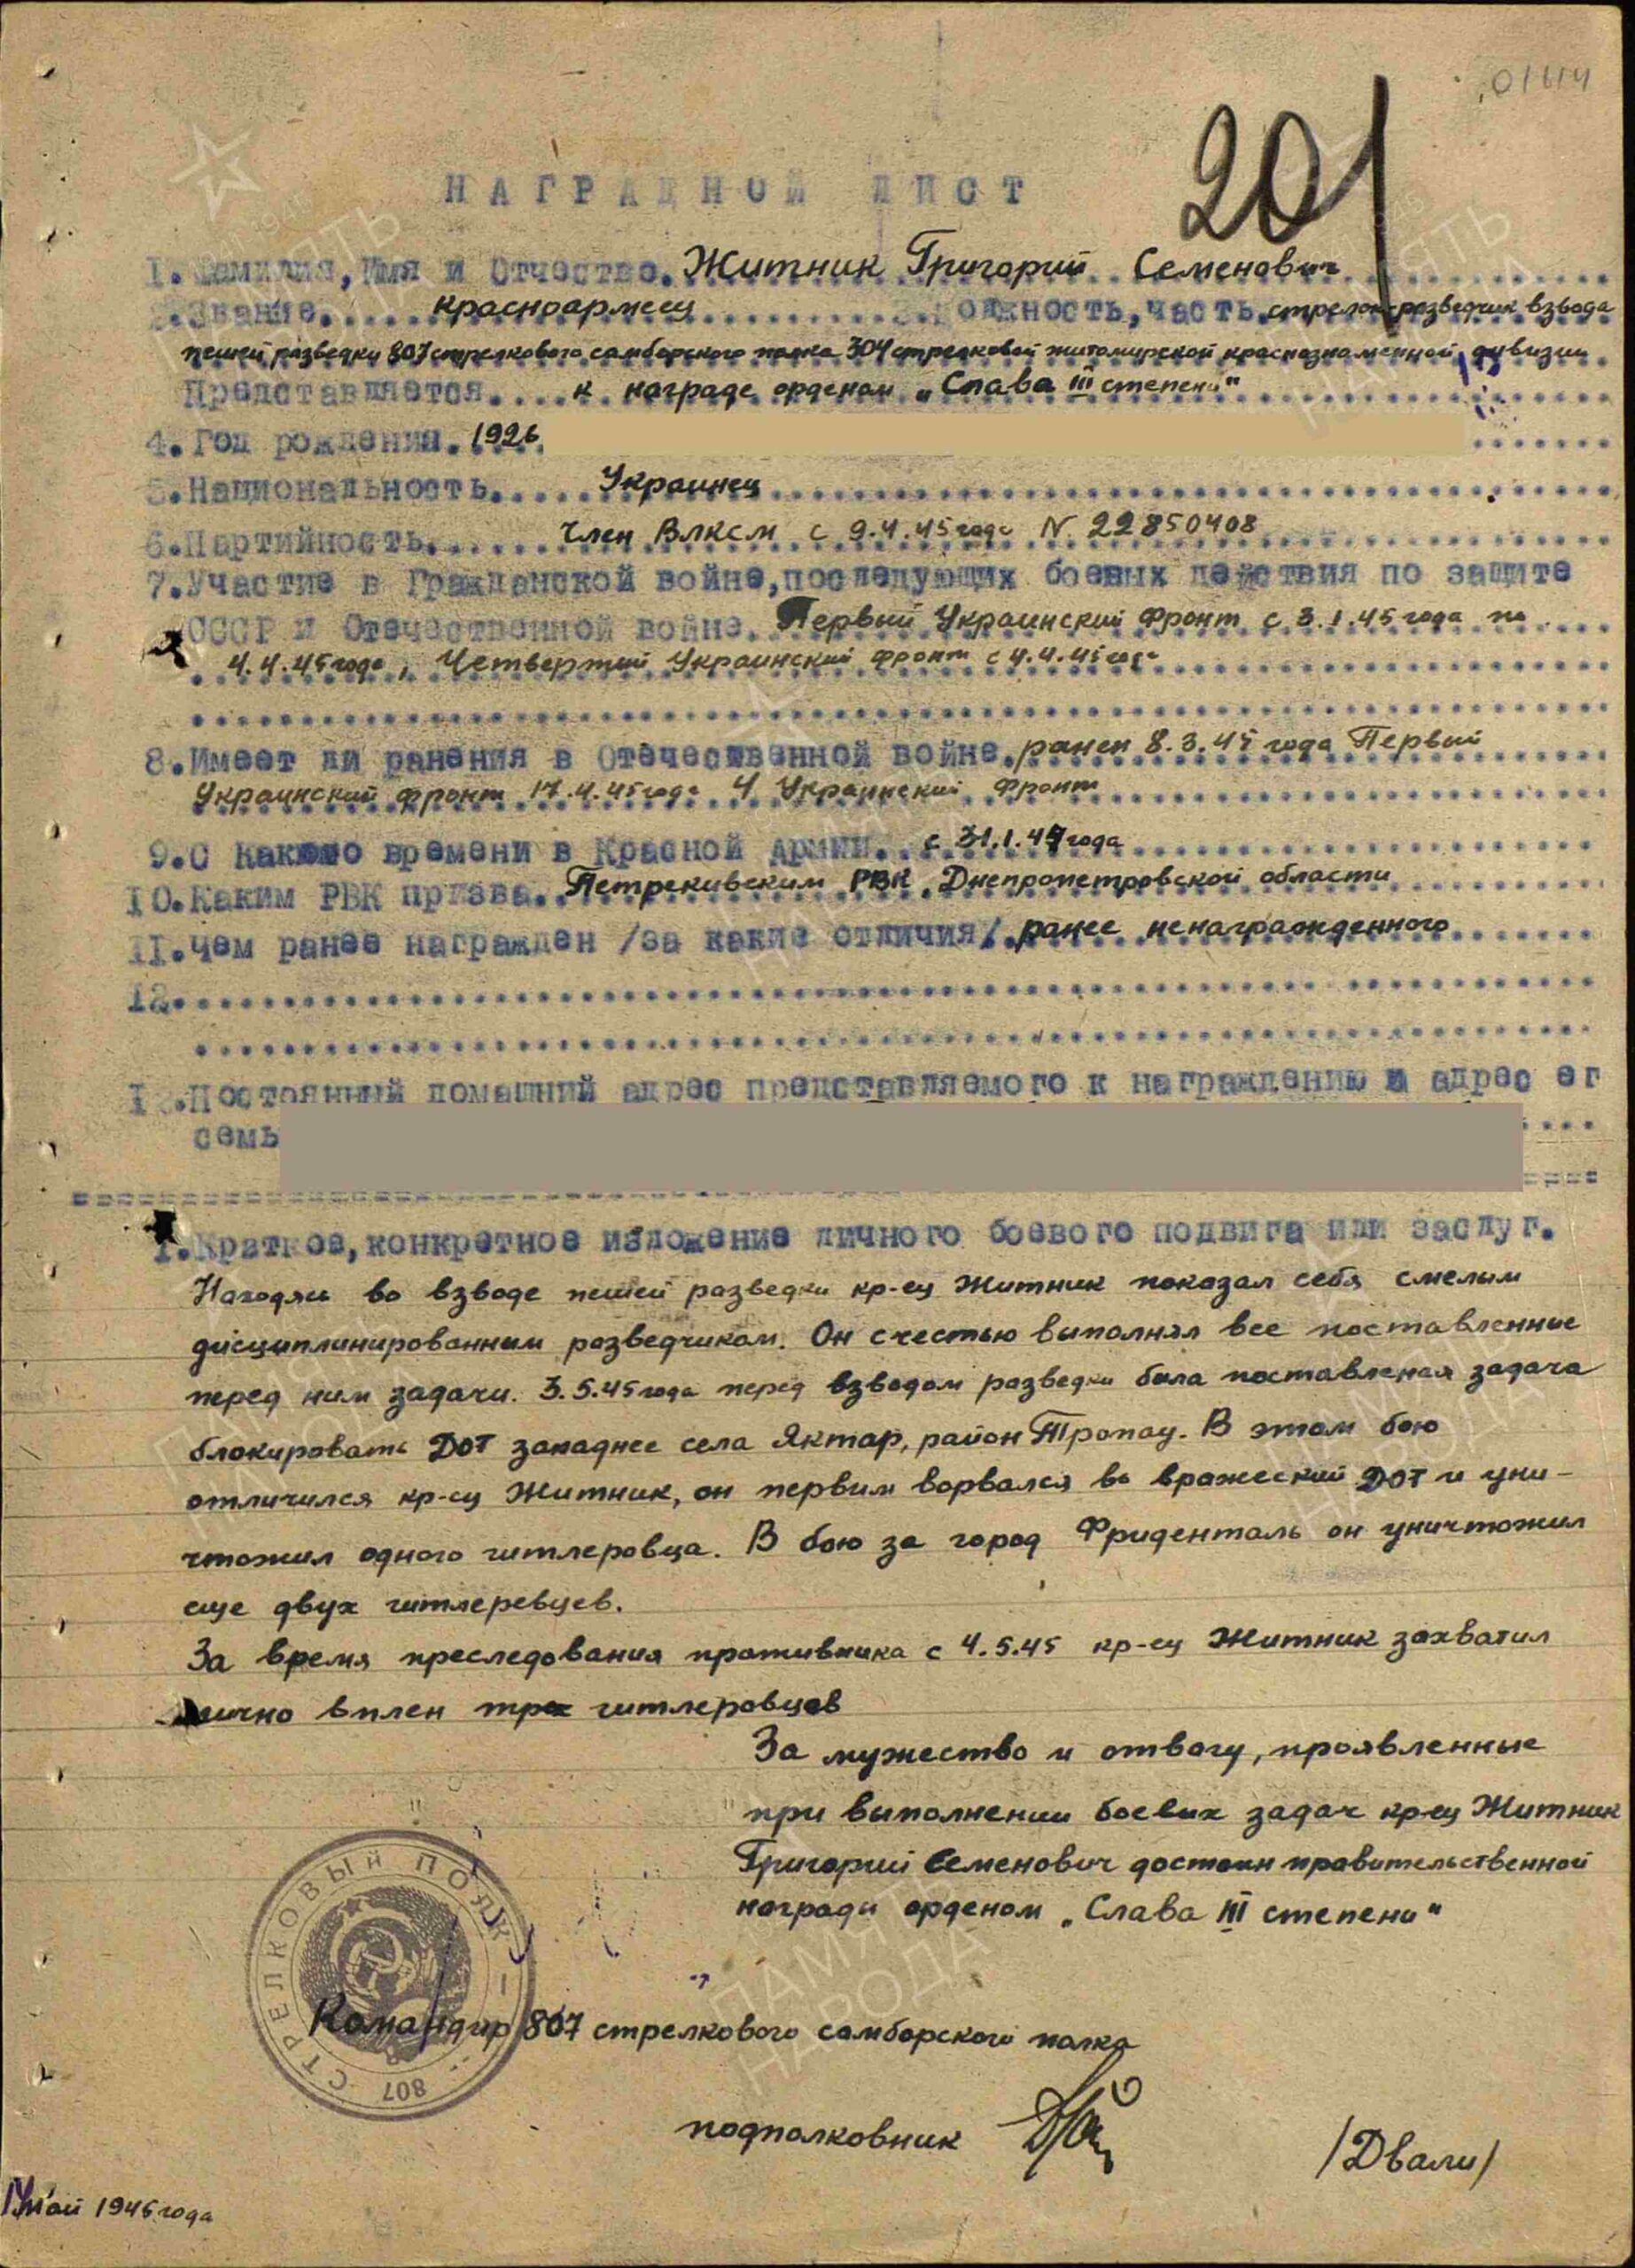 01414
201
НАГРАДНОЙ ЛИСТ
1. Фамилия, Имя и Отчество. Житник Григорий Семенович
2. Звание. красноармеец 3. Должность, часть. стрелок-разведчик взвода
пешей разведки 807 стрелкового самборского полка 304 стрелковой житомирской краснознаменной дивизии
Представляется. к награде орденом „Слава III степени"
4. Год рождения. 1926
5. Национальность. Украинец
6. Партийность. член ВЛКСМ с 9.4.45 года N 22850408
7. Участие в Гражданской войне, последующих боевых действия по защите
СССР и Отечественной войне. Первый Украинский фронт с 3.1.45 года по
4.4.45 года, Четвертый Украинский фронт с 4.4.45 года
8. Имеет ли ранения в Отечественной войне. ранен 8.3.45 года Первый
Украинский фронт 17.4.45 года 4 Украинский фронт
9. С какого времени в Красной Армии. с 31.1.44 года
10. Каким РВК призва. Петрекивским РВК Днепропетровской области
11. Чем ранее награжден /за какие отличия/. ранее ненагражденного
12.
12. Постоянный домашний адрес представляемого к награждению и адрес ег
семь
1. Краткое, конкретное изложение личного боевого подвига или заслуг.
Находясь во взводе пешей разведки кр-ец Житник показал себя смелым
дисциплинированным разведчиком. Он с честью выполнял все поставленные
перед ним задачи. 3.5.45 года перед взводом разведки была поставленая задача
блокировать ДОТ западнее села Яктар, район Тропау. В этом бою
отличился кр-ец Житник, он первым ворвался во вражеский ДОТ и уни-
чтожил одного гитлеровца. В бою за город Фриденталь он уничтожил
еще двух гитлеревцев.
За время преследования противника с 4.5.45 кр-ец Житник захватил
лично в плен трех гитлеровцев
За мужество и отвагу, проявленные
при выполнении боевых задач кр-ец Житник
Григорий Семенович достоин правительственной
награды орденом „Слава III степени"
СТРЕЛКОВЫЙ ПОЛК 807
Командир 807 стрелкового самборского полка
подполковник /Двали/
май 1945 года
ПАМЯТЬ
НАРОДА